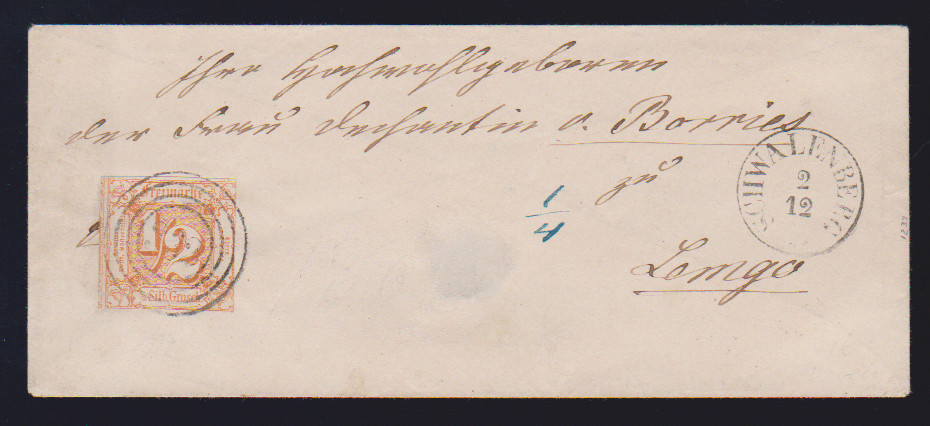 Ihro Hochwohlgeboren
der Frau Dechantin v. Borries
zu
Lemgo
1/4
SCHWALENBERG
2
12
Freimarke
1/2
Silb. Grosch.
1237